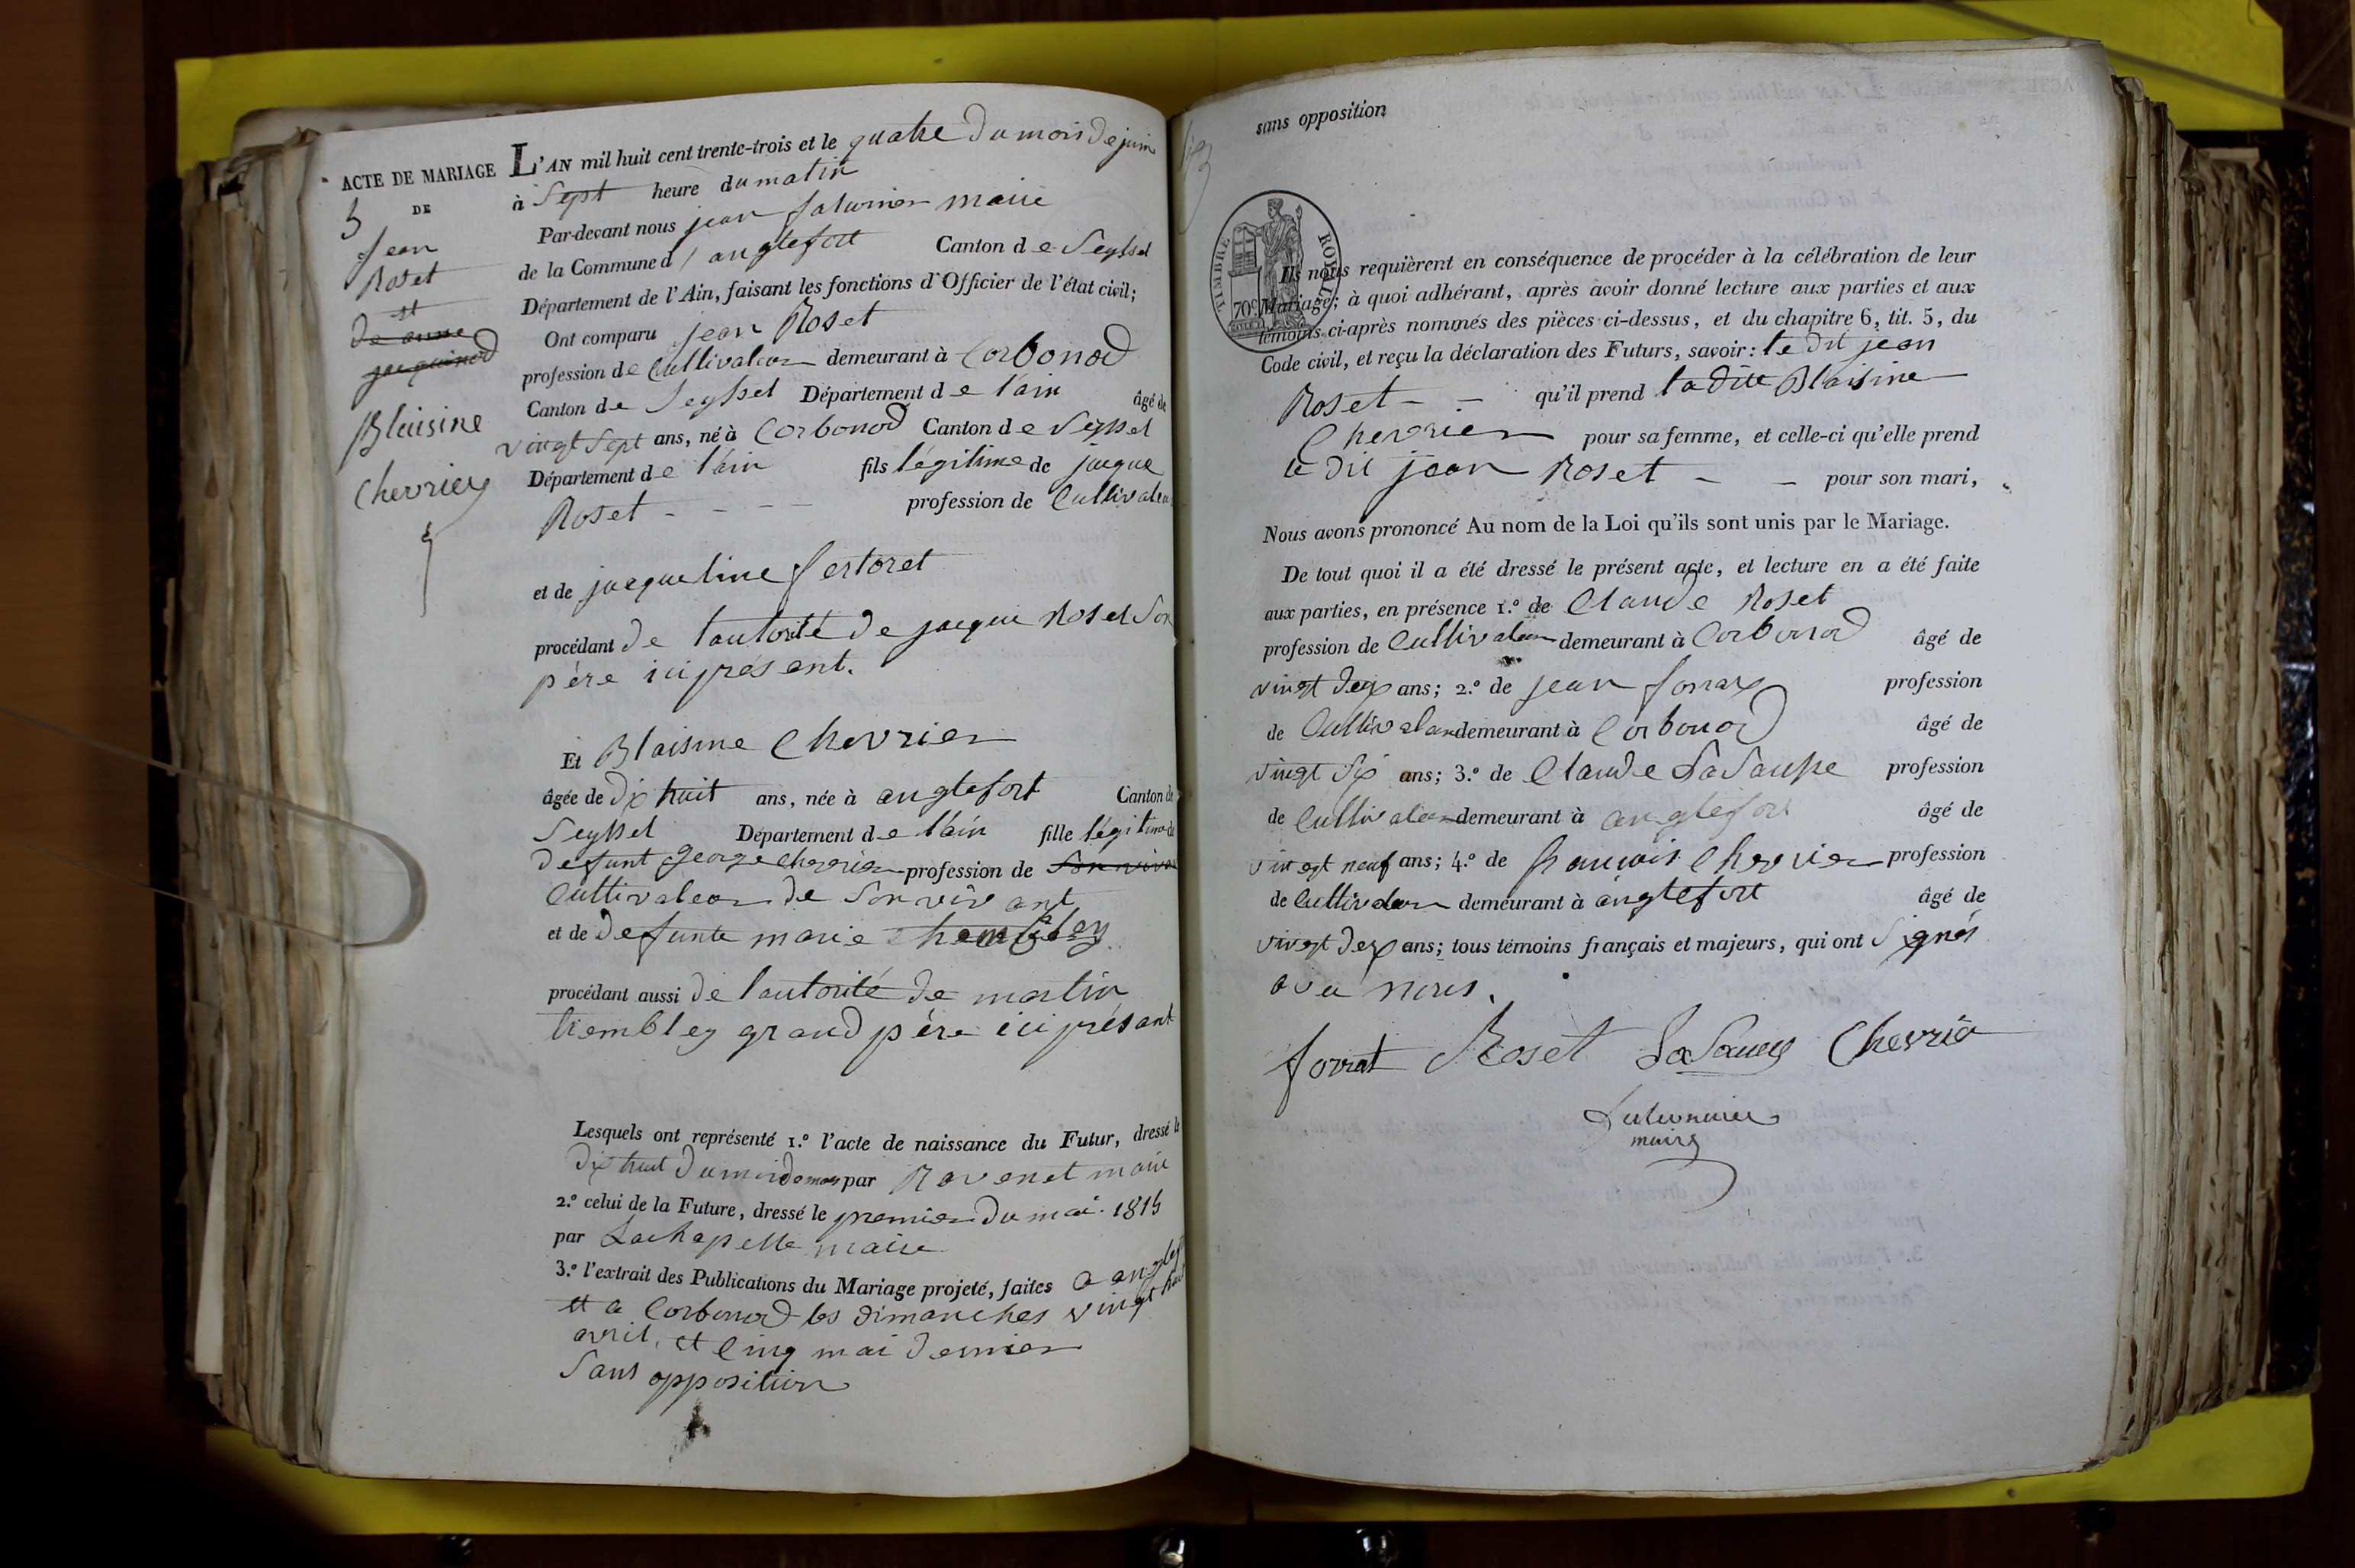 ACTE DE MARIAGE
5 DE
Jean
Roset
et
de anne
jacquinod
Blaisine
Chevrier
L'AN mil huit cent trente-trois et le quatre du mois de juin
à Sept heure du matin
Par-devant nous jean maire
de la Commune d'anglefort Canton de Seyssel
Département de l'Ain, faisant les fonctions d'Officier de l'état civil;
Ont comparu jean Roset
profession de Cultivateur demeurant à Corbonod
Canton de Seyssel Département de l'ain âgé de
vingt Sept ans, né à Corbonod Canton de Seyssel
Département de l'ain fils légitime de jacque
Roset - - - - profession de Cultivateur
et de jacqueline fertoret
procédant de l'autorité de jacque Roset Son
père ici présent.
Et Blaisine Chevrier
âgée de dix huit ans, née à anglefort Canton de
Seyssel Département de l'ain fille légitime de
defunt george chevrier profession de Son vivant
Cultivateur de Son vivant
et de defunte marie
procédant aussi de l'autorité de martin
trembley grand père ici présant
Lesquels ont représenté 1.º l'acte de naissance du Futur, dressé le
dix huit du mois de mars par Ravenet maire
2.º celui de la Future, dressé le premier du mai 1815
par Lachapelle maire
3.º l'extrait des Publications du Mariage projeté, faites a anglefort
et a Corbonod les dimanches vingt huit
avril, et cinq mai dernier
Sans opposition
sans opposition
TIMBRE ROYAL
70 c
Ils nous requièrent en conséquence de procéder à la célébration de leur
Mariage; à quoi adhérant, après avoir donné lecture aux parties et aux
témoins ci-après nommés des pièces ci-dessus, et du chapitre 6, tit. 5, du
Code civil, et reçu la déclaration des Futurs, savoir: le dit jean
Roset - - qu'il prend la dite Blaisine
Chevrier pour sa femme, et celle-ci qu'elle prend
le dit jean Roset - - pour son mari,
Nous avons prononcé Au nom de la Loi qu'ils sont unis par le Mariage.
De tout quoi il a été dressé le présent acte, et lecture en a été faite
aux parties, en présence 1.º de Claude Roset
profession de Cultivateur demeurant à Corbonod âgé de
vingt deux ans; 2.º de jean profession
de Cultivateur demeurant à Corbonod âgé de
vingt Six ans; 3.º de Claude LaSausse profession
de Cultivateur demeurant à anglefort âgé de
vingt neuf ans; 4.º de francois Chevrier profession
de Cultivateur demeurant à anglefort âgé de
vingt deux ans; tous témoins français et majeurs, qui ont Signés
avec nous.
forrat Roset Chevrier
maire